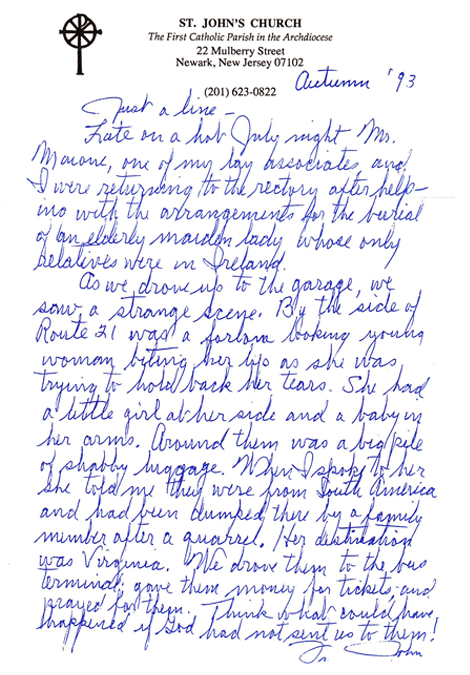 ST. JOHN'S CHURCH
The First Catholic Parish in the Archdiocese
22 Mulberry Street
Newark, New Jersey 07102
(201) 623-0822
Autumn '93
Just a line –
Late on a hot July night Mr.
Maione, one of my lay associates, and
I were returning to the rectory after help-
ing with the arrangements for the burial
of an elderly maiden lady whose only
relatives were in Ireland.
As we drove up to the garage, we
saw a strange scene. By the side of
Route 21 was a forlorn looking young
woman biting her lip as she was
trying to hold back her tears. She had
a little girl at her side and a baby in
her arms. Around them was a big pile
of shabby luggage. When I spoke to her
she told me they were from South America
and had been dumped there by a family
member after a quarrel. Her destination
was Virginia. We drove them to the bus
terminal; gave them money for tickets; and
prayed for them. Think what could have
happened if God had not sent us to them!
Fr. John